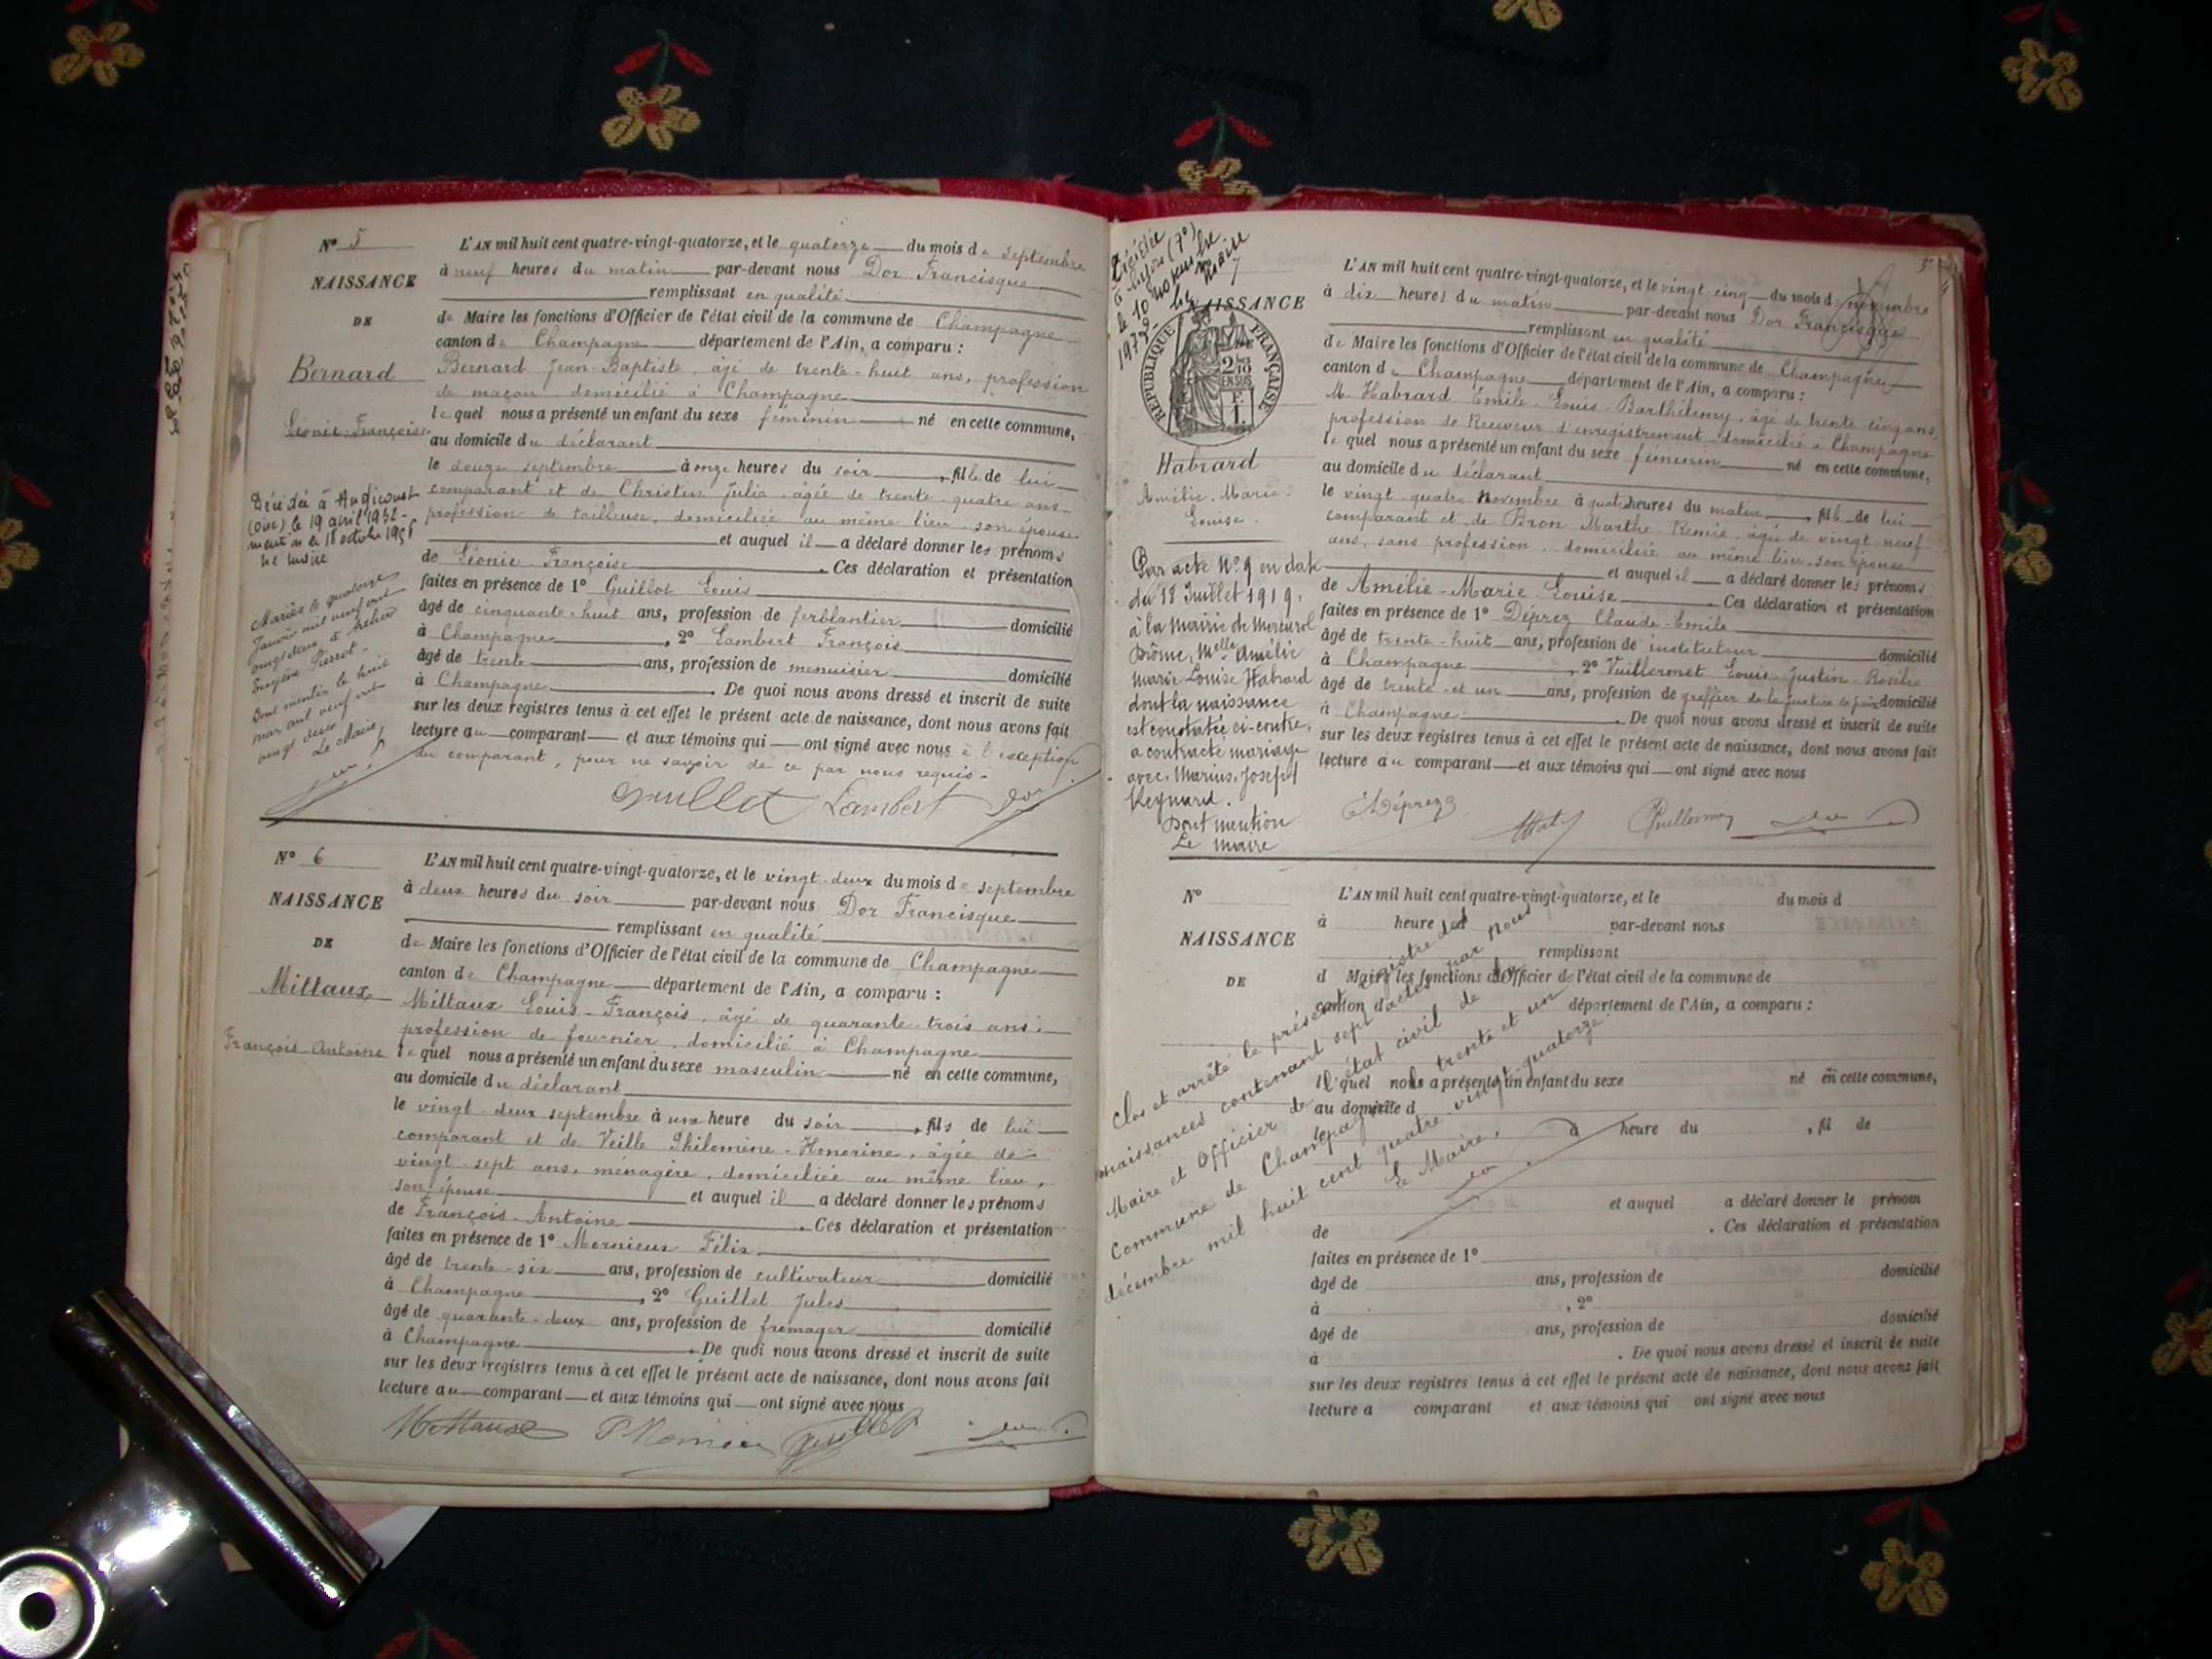 N° 5
NAISSANCE
DE
Bernard
Léonie-Françoise
Décédée à
le 19 avril
mention le 18 octobre
Le Maire
Mariée le quatorze
Janvier mil neuf cent
vingt deux à
Eugène Pierrot
Dont mention le huit
mars mil neuf cent
vingt deux
Le Maire,
L'AN mil huit cent quatre-vingt-quatorze, et le quatorze du mois de septembre
à neuf heures du matin par-devant nous Dor Francisque
remplissant en qualité
de Maire les fonctions d'Officier de l'état civil de la commune de Champagne
canton de Champagne département de l'Ain, a comparu :
Bernard Jean-Baptiste, âgé de trente-huit ans, profession
de maçon domicilié à Champagne
lequel nous a présenté un enfant du sexe féminin né en cette commune,
au domicile du déclarant
le douze septembre à onze heures du soir, fille de lui
comparant et de Christin Julie, âgée de trente-quatre ans
profession de tailleuse, domiciliée au même lieu son épouse
et auquel il a déclaré donner les prénoms
de Léonie-Françoise. Ces déclaration et présentation
faites en présence de 1° Guillot Louis
âgé de cinquante-huit ans, profession de ferblantier domicilié
à Champagne, 2° Lambert François
âgé de trente ans, profession de menuisier domicilié
à Champagne. De quoi nous avons dressé et inscrit de suite
sur les deux registres tenus à cet effet le présent acte de naissance, dont nous avons fait
lecture au comparant et aux témoins qui ont signé avec nous à l'exception
du comparant, pour ne savoir de ce par nous requis.
Guillot Lambert Dor
N° 6
NAISSANCE
DE
Mittaux
François-Antoine
L'AN mil huit cent quatre-vingt-quatorze, et le vingt-deux du mois de septembre
à deux heures du soir par-devant nous Dor Francisque
remplissant en qualité
de Maire les fonctions d'Officier de l'état civil de la commune de Champagne
canton de Champagne département de l'Ain, a comparu :
Mittaux Louis-François, âgé de quarante-trois ans,
profession de fournier, domicilié à Champagne
lequel nous a présenté un enfant du sexe masculin né en cette commune,
au domicile du déclarant
le vingt-deux septembre à une heure du soir, fils de lui
comparant et de Veille Philomène-Honorine, âgée de
vingt-sept ans, ménagère, domiciliée au même lieu,
son épouse et auquel il a déclaré donner les prénoms
de François-Antoine. Ces déclaration et présentation
faites en présence de 1° Mornieux Félix
âgé de trente-six ans, profession de cultivateur domicilié
à Champagne, 2° Guillet Jules
âgé de quarante-deux ans, profession de fromager domicilié
à Champagne. De quoi nous avons dressé et inscrit de suite
sur les deux registres tenus à cet effet le présent acte de naissance, dont nous avons fait
lecture au comparant et aux témoins qui ont signé avec nous
Mittaux
Décédée
(7°)
le 10 novembre
1972
Le Maire
7
NAISSANCE
REPUBLIQUE FRANÇAISE
2/10
EN SUS
Habrard
Amélie-Marie-
Louise
Par acte N° 9 en date
du 18 Juillet 1919,
à la mairie de Mercurol
Drôme, Melle Amélie
Marie Louise Habrard
dont la naissance
est constatée ci-contre,
a contracté mariage
avec Marius Joseph
Reynard.
Dont mention
Le maire
L'AN mil huit cent quatre-vingt-quatorze, et le vingt-cinq du mois de novembre
à dix heures du matin par-devant nous Dor Francisque
remplissant en qualité
de Maire les fonctions d'Officier de l'état civil de la commune de Champagne
canton de Champagne département de l'Ain, a comparu :
M. Habrard Émile-Louis-Barthélemy, âgé de trente-cinq ans
profession de Receveur d'enregistrement domicilié à Champagne
lequel nous a présenté un enfant du sexe féminin né en cette commune,
au domicile du déclarant
le vingt-quatre novembre à quatre heures du matin, fille de lui
comparant et de Bron Marthe-Remie, âgée de vingt neuf
ans, sans profession, domiciliée au même lieu son épouse
et auquel il a déclaré donner les prénoms
de Amélie-Marie-Louise. Ces déclaration et présentation
faites en présence de 1° Déprez Claude-Emile
âgé de trente-huit ans, profession de instituteur domicilié
à Champagne, 2° Vuillermet Louis-Justin
âgé de trente-et un ans, profession de greffier de la justice de paix domicilié
à Champagne. De quoi nous avons dressé et inscrit de suite
sur les deux registres tenus à cet effet le présent acte de naissance, dont nous avons fait
lecture au comparant et aux témoins qui ont signé avec nous
E Déprez
N°
NAISSANCE
DE
L'AN mil huit cent quatre-vingt-quatorze, et le du mois d
à heure d par-devant nous
remplissant
d Maire les fonctions d'Officier de l'état civil de la commune de
canton d département de l'Ain, a comparu :
l quel nous a présenté un enfant du sexe né en cette commune,
au domicile d
le à heure du , fil de
et auquel a déclaré donner le prénom
de . Ces déclaration et présentation
faites en présence de 1°
âgé de ans, profession de domicilié
à , 2°
âgé de ans, profession de domicilié
à . De quoi nous avons dressé et inscrit de suite
sur les deux registres tenus à cet effet le présent acte de naissance, dont nous avons fait
lecture a comparant et aux témoins qui ont signé avec nous
Clos et arrêté le présent registre des
naissances contenant sept actes par nous
Maire et Officier de l'état civil de la
Commune de Champagne le trente et un
décembre mil huit cent quatre vingt quatorze.
Le Maire,